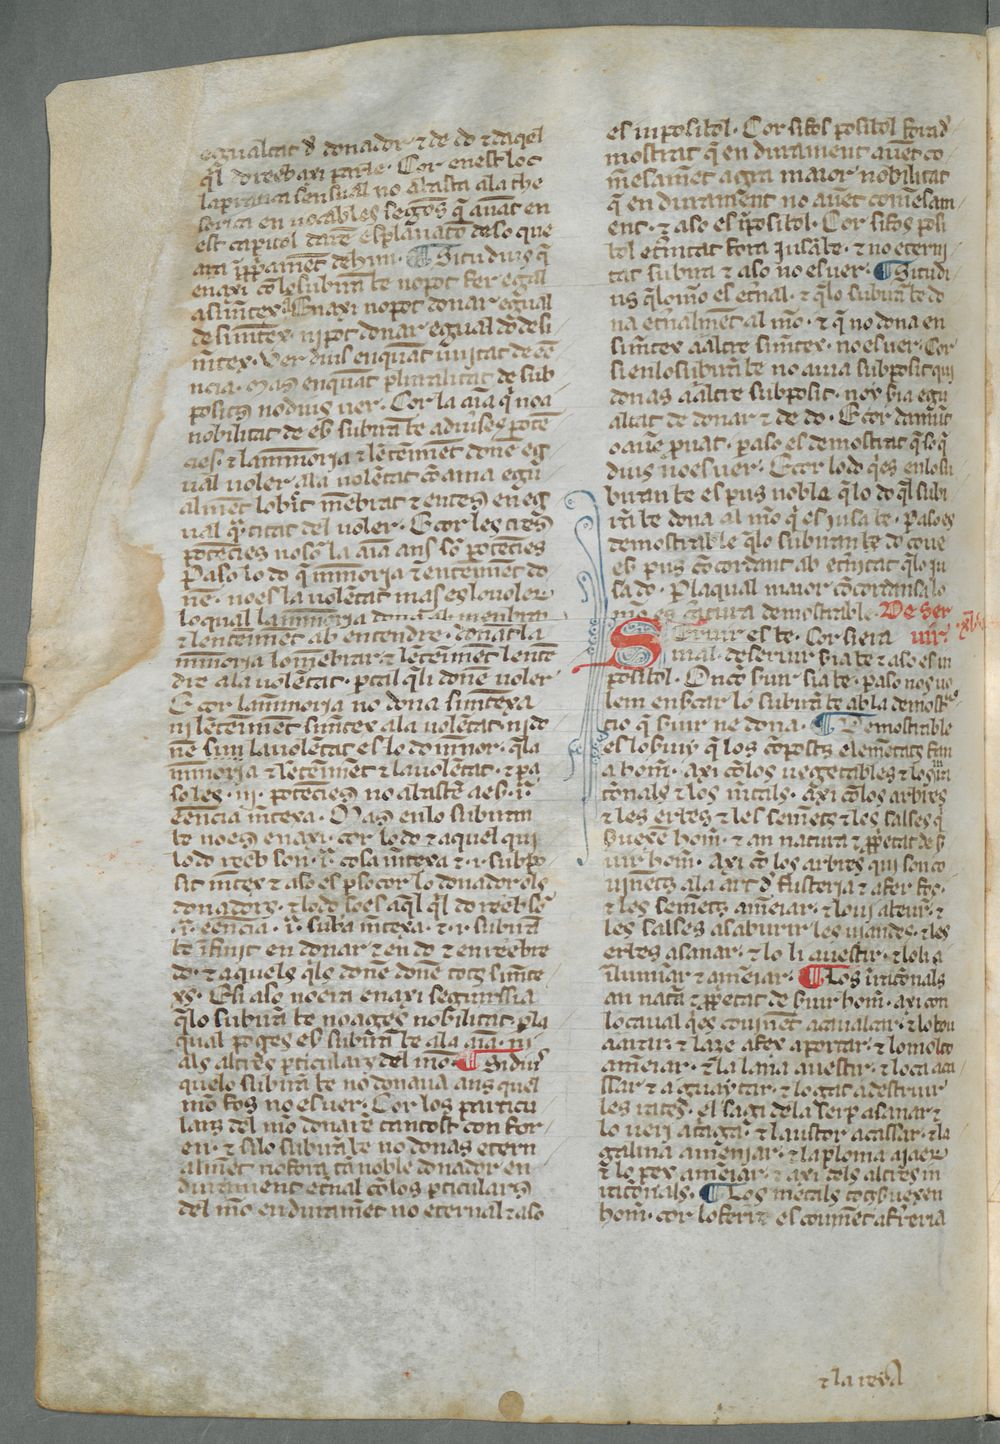 egualtat d̄ donador ⁊ de do ⁊ daqel
q̄l do reeb axi parle · Cor en est loc
la pratica sensual no abasta a la the
lorica en vocables segons q̄ auāt en
est capitol darē esplanacio de so que
ara
¶ Si tu dius q̄
enaxi cō lo subirā be no pot fer egal
a si mteẋ Enaxi no pot donar egual
de si mteẋ · ni pot donar egual do de si
mteẋ · Ver dius en quant unitat de eē
ncia · Mas en quant pluralitat de sub
posits no dius uer · Cor la aīa q̄ no a
nobilitat de eb subirā be a diuses potē
cies · ⁊ la mīmoria ⁊ lentenimēt donē eg
ual uoler a la uolētat cō ama egu
almēt lobīt mēbrat ⁊ entes en eg
ual q̄titat del uoler · E cor les tres
potēcies no so la aīa ans so potēcies
Paso lo do q̄ mīmoria ⁊ entenimēt do
nē · no es la uolētat mas es lo uoler
lo qual la mīmoria dona ab membrar
⁊ lentenimēt ab entendre · donat la
mīmoria lo mēbrar ⁊ lentenimēt lentē
dre a la uolētat · p tal q̄ li donē uoler
E cor la mīmoria no dona si mteẋa
ni lentenimēt si mteẋ a la uolētat · ni do
nē la uolētat es lo do menor · q̄ la
mīmoria ⁊ lentenimēt ⁊ la uolētat · ⁊ pa
so les · iij · potēcies no abastē a es · i ·
eēncia mteẋa · Mas en lo subirā
be no es enaxi · cor lo do ⁊ aquel qui
lo do reeb son · i · cosa mteẋa ⁊ · i · subpo
sit mteẋ ⁊ aso es p so cor lo donador o ls
donadors · ⁊ lo do so es aq̄l q̄l do reeb so
· i · eēncia · i · subsā mteẋa · ⁊ · i · subirā
be īfinit en donar ⁊ en do ⁊ en reebre
do · ⁊ aquels q̄ lo donē donē tots si mte
ẋs · E si aso no era enaxi seguirssia
q̄ lo subirā be no ages nobilitat · p la
qual poges eb subirā be a la aīa · ni
als altres pticulars del mō · ¶ Si diuṡ
que lo subirā be no donaua ans quel
mō fos no es uer · Cor los particu
lars del mō donarē tantost con for
en · ⁊ si lo subirā be no donas etern
almēt no fora tā noble donador en
durament etnal cō los pticulars
del mō en duramēt no eternal ⁊ aso
es inposibol · Cor si fos posibol fora d̄
mostrat q̄ en durament auēt co
mēsamēt agra maior nobilitat
q̄ en duramēt no auēt comēsam
ent · ⁊ aso es īposibol · Cor si fos posi
bol etnitat fora iusa be · ⁊ no eterni
tat subira ⁊ aso no es uer · ¶ Si tu di
us q̄ lo mō es etnal · ⁊ q̄ lo subirā be do
na etnalmēt al mō · ⁊ q̄ no dona en
si mteẋ a altre si mteẋ · no es uer · Cor
si en lo subirā be no auia subposit qui
donas a altre subposit · noy sia egu
altat de donar ⁊ de do · E cor damūt
o auē puat · p aso es demostrat q̄ so q̄
dius no es uer · E cor lo do q̄ es en lo su
biran be es pus noble q̄ lo do q̄l subi
rā be dona al mō q̄ es iusa be · P aso es
demostrable q̄ lo subiran be do coue
eb pus cōcordant ab etnitat q̄ lo iu
sa do · P la qual maior cōcordansa lo
mō es creatura demostrable · De ser
uir ·
Seruir es be · Cor si era
mal · deseruir sia be ⁊ aso es in
posibol · On cō suir sia be · p aso nos uo
lem ensercar lo subirā be ab la demost
cio q̄ suir ne dona · ¶ Demostrable
es lo suiy q̄ los cōposts elemētats fan
a hom · axi cō los uegetables ⁊ los iīra
cionals ⁊ los mtals · Axi cō los arbres
⁊ les erbes ⁊ les semēts ⁊ les salses q̄
sueẋē hom · ⁊ an natura ⁊ ꝓpetat de s
uir hom · Axi cō los arbres qui son co
uinēts a la art d̄ fusteria ⁊ a fer foc ·
⁊ les semēts a mēiar · ⁊ lo ui a beur · ⁊
les salses a saburir les uiandes · ⁊ les
erbes a sanar · ⁊ lo li a uestir · ⁊ loli a
ilumiar ⁊ a mēiar · ¶ Los īracionals
an natā ⁊ ꝓpetat de suir hom · axi con
lo caual q̄ es couinēt a caualcar · ⁊ lo bou
a arar · ⁊ laze a fex a portar · ⁊ lo molto
a mēiar · ⁊ la lana a uestir · ⁊ lo ca a ca
ssar ⁊ a guaytar · ⁊ lo gat a destruir
les rates · el sagi de la serp a sanar ⁊
lo ueri a · ⁊ laustor a cassar · ⁊ la
galina a mēnjar · ⁊ la ploma a jaer
⁊ lo peẋ a mēiar · ⁊ axi dels altres in
racionals · ¶ Los metals tots sueẋen
hom · cor lo ferre es couinēt a freria
⁊ la reẋa